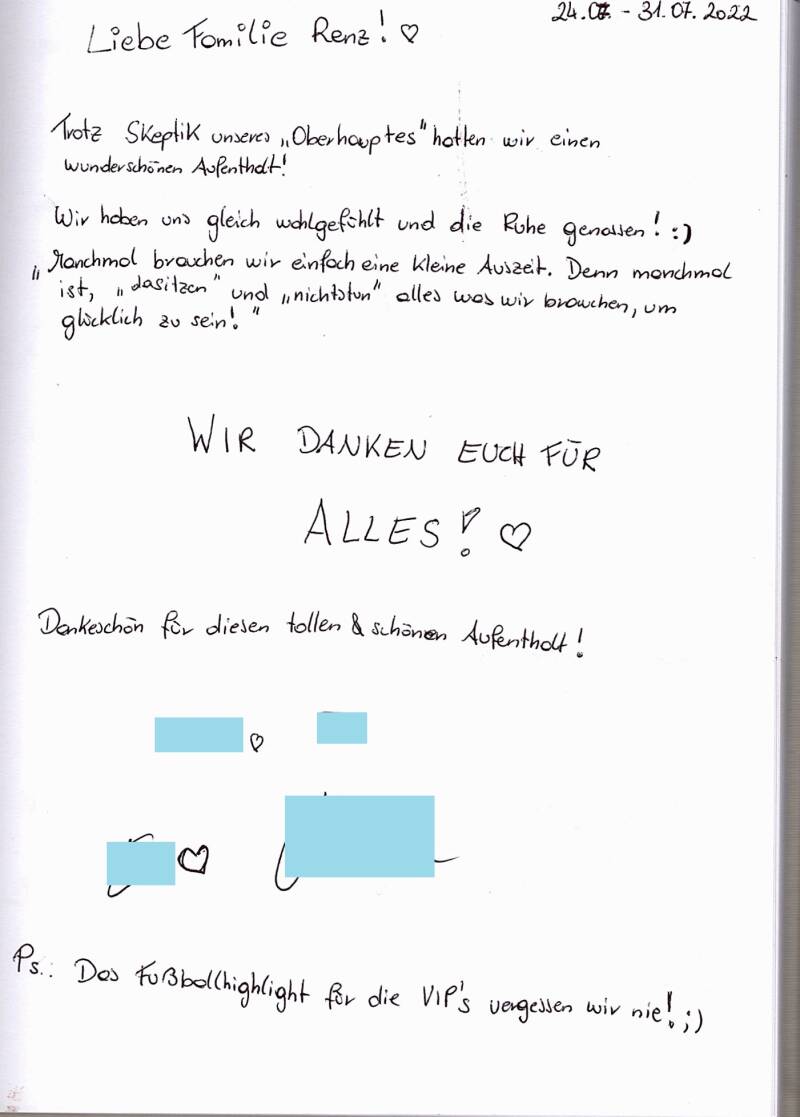 24.07. - 31.07.2022
Liebe Familie Renz! ♡
Trotz Skeptik unseres „Oberhauptes" hatten wir einen
wunderschönen Aufenthalt!
Wir haben uns gleich wohlgefühlt und die Ruhe genossen! :)
„Manchmal brauchen wir einfach eine kleine Auszeit. Denn manchmal
ist, „dasitzen" und „nichtstun" alles was wir brauchen, um
glücklich zu sein!"
WIR DANKEN EUCH FÜR
ALLES! ♡
Dankeschön für diesen tollen & schönen Aufenthalt!
♡
♡
Ps.: Das Fußballhighlight für die VIP's vergessen wir nie! ;)